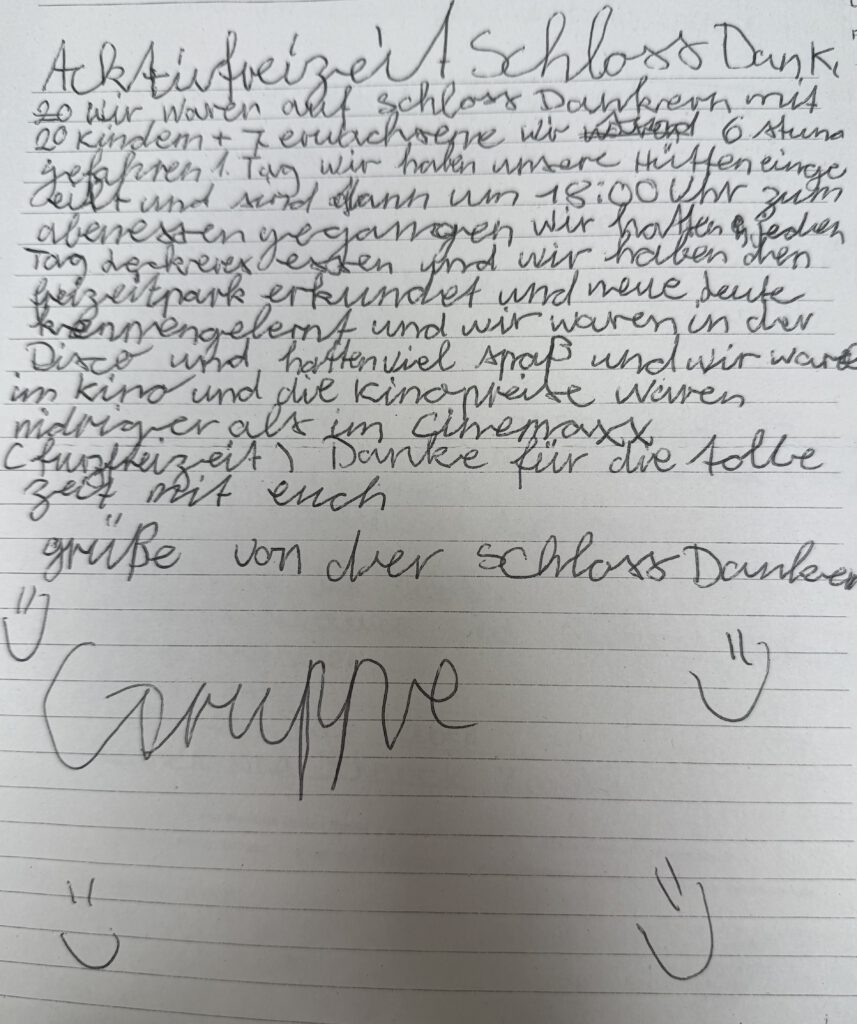 Acktivfreizeit Schloss Dank
20 wir waren auf schloss Dankrern mit
20 Kindern + 7 erwachsene wir 6 stund
gefahren 1. Tag wir haben unsere Hütten einge
teilt und sind dann um 18:00 Uhr zum
abenessen gegangen wir hatten jeden
Tag leckeres essen und wir haben den
freizeitpark erkundet und neue leute
kennengelernt und wir waren in der
Disco und hatten viel spaß und wir ware
im kino und die kinopreise waren
nidriger als im Cinemaxx
(funfreizeit) Danke für die tolle
zeit mit euch
grüße von der schloss Danker
Gruppe